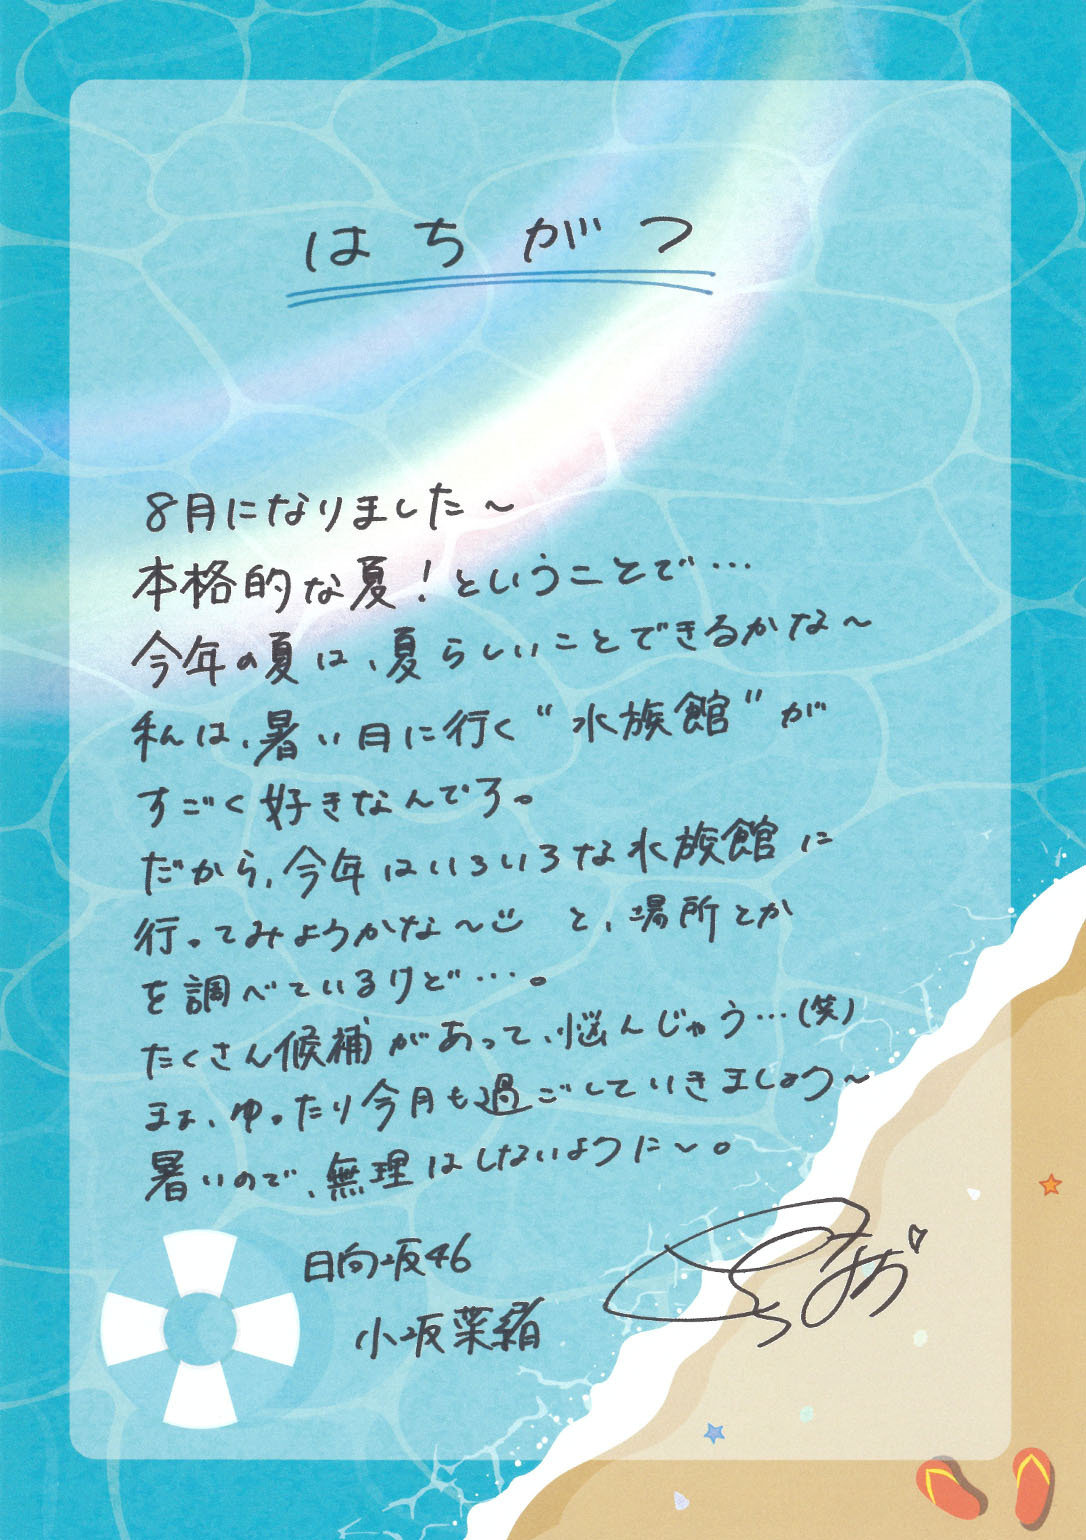 はちがつ
8月になりました〜
本格的な夏！ということで…
今年の夏は、夏らしいことできるかな〜
私は、暑い日に行く“水族館”が
すごく好きなんです。
だから、今年はいろいろな水族館に
行ってみようかな〜 と、場所とか
を調べているけど…。
たくさん候補があって、悩んじゃう…(笑)
まぁ、ゆったり今月も過ごしていきましょう〜
暑いので、無理はしないように〜。
日向坂46
小坂菜緒